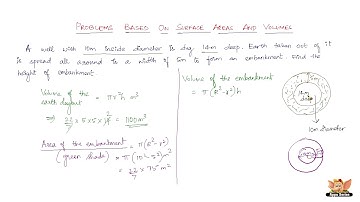 PROBLEMS BASED ON SURFACE AREAS AND VOLUMES
A well with 10m inside diameter is dug 14m deep. Earth taken out of it
is spread all around to a width of 5m to form an embankment. Find the
height of embankment.
Volume of the
earth dugout = πr²h m³
⇒ 22/7 × 5 × 5 × 14 = 1100m³
Area of the embankment = π(R²-r²)
(green shade) = π(10²-5²)m²
= 22/7 × 75 m²
Volume of the embankment
= π(R²-r²)h
10m diameter